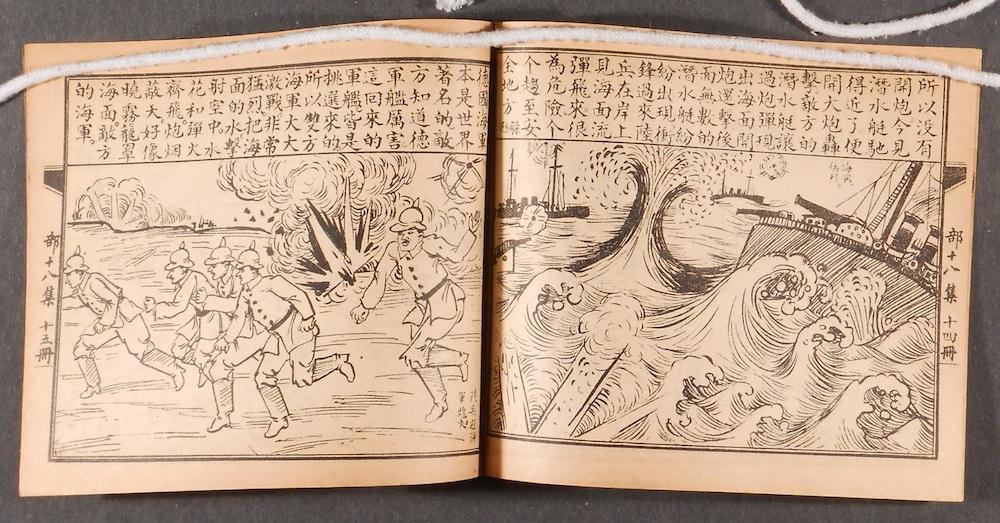 所以没有
開炮今見
潛水艇馳
得近了便
開大炮轟
擊敵方的
潛水艇讓
過炮彈現
出海面開
炮還擊後
面無數的
潛水艇紛
紛出現衝
鋒過來陸
兵在岸上
見海面流
彈飛來很
為危險个
个趨至安
全地方
海戰
部十八集 十四冊
德國海軍
本是世界
著名的敵
方知道德
軍艦厲害
這回來的
軍艦皆是
挑選來的
所以雙方
海軍大大
激戰非常
猛烈把海
面的水擊
射空中水
花和彈火
齊飛炮烟
蔽天好像
曉霧龍罩
海面敵方
的海軍
部十八集 十五冊